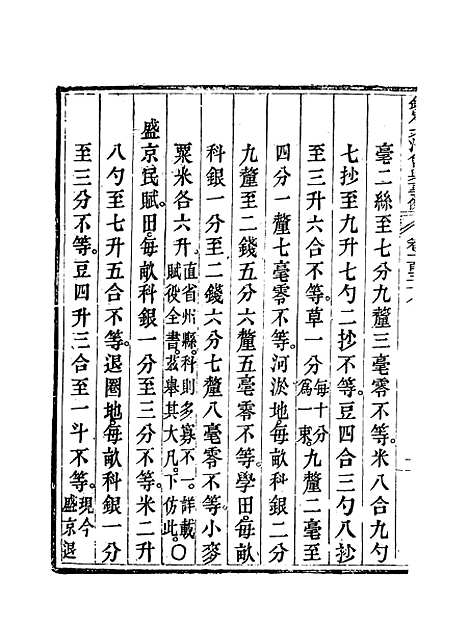 毫二絲至七分九釐三毫零不等。米八合九勺
七抄至九升七勺二抄不等。豆四合三勺八抄
至三升六合不等。草一分每十分爲一束。九釐二毫至
四分一釐七毫零不等。河淤地。每畝科銀二分
九釐至二錢五分六釐五毫零不等。學田。每畝
科銀一分至二錢六分七釐八毫零不等。小麥
粟米各六升。直省州縣。科則多寡不一。詳載賦役全書。茲舉其大凡。下仿此。○
盛京民賦。田。每畝科銀一分至三分不等。米二升
八勺至七升五合不等。退圈地。每畝科銀一分
至三分不等。豆四升三合至一斗不等。現今盛京退